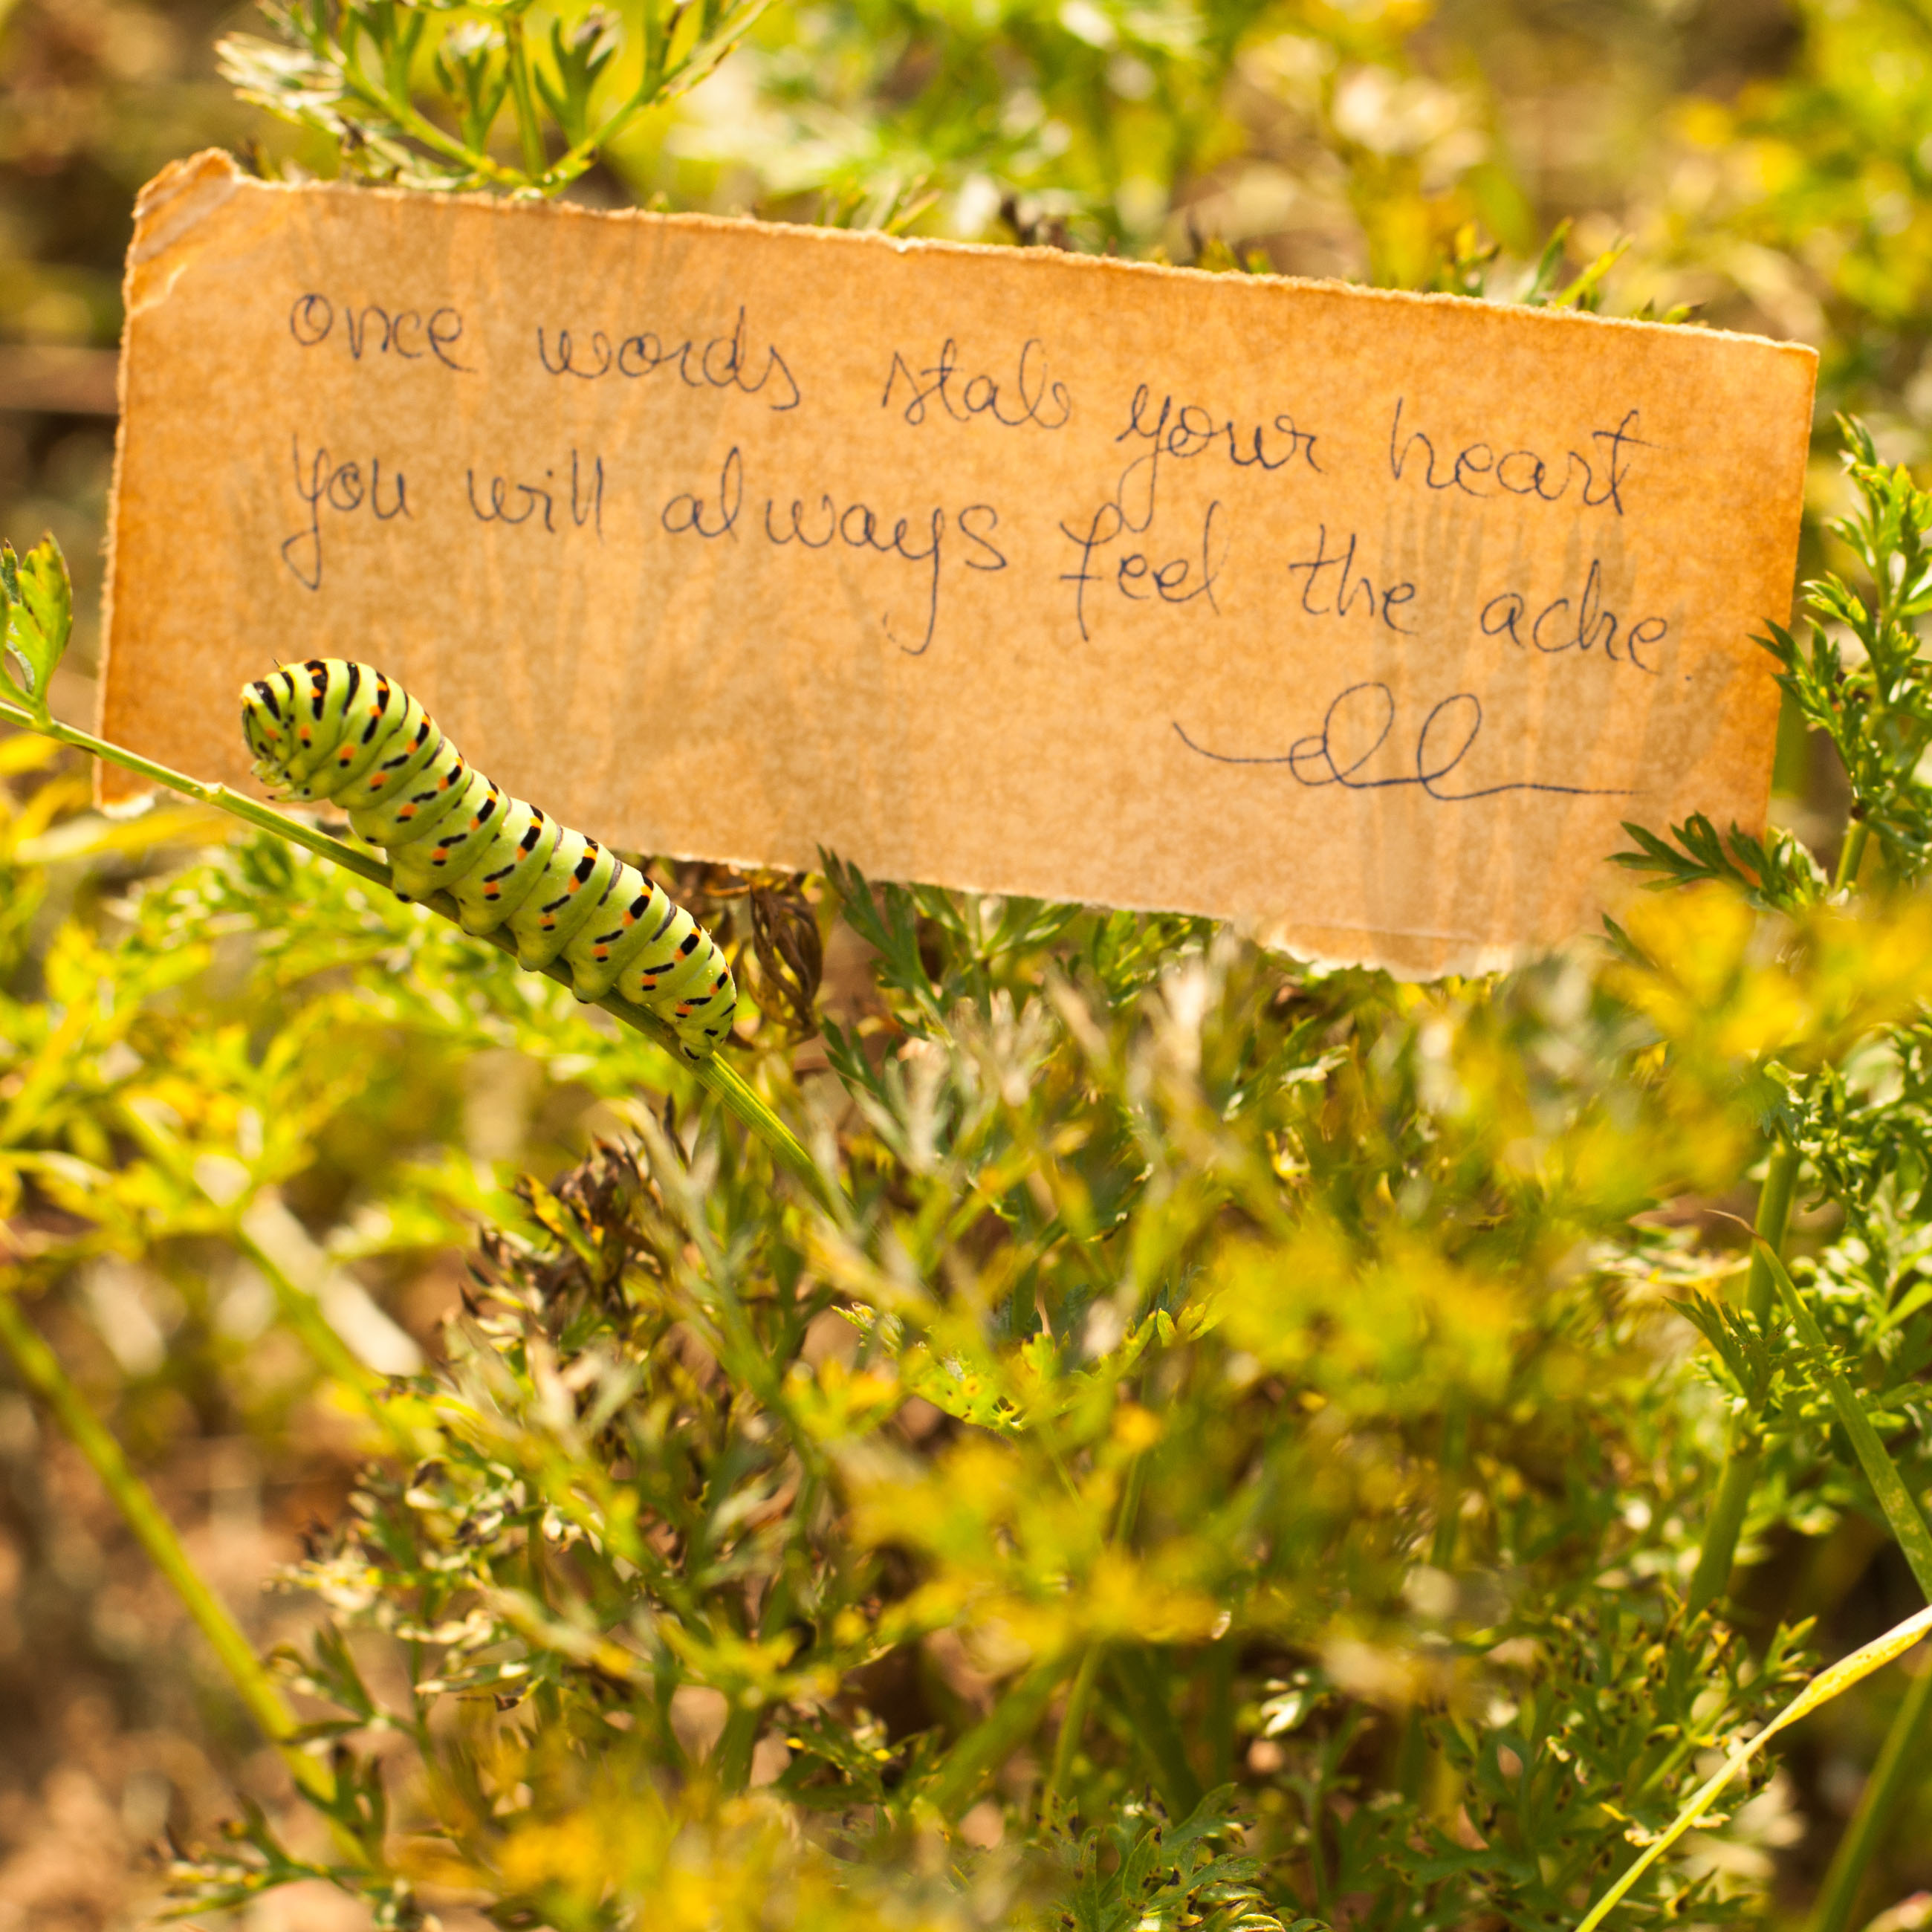 once words stab your heart
you will always feel the ache.